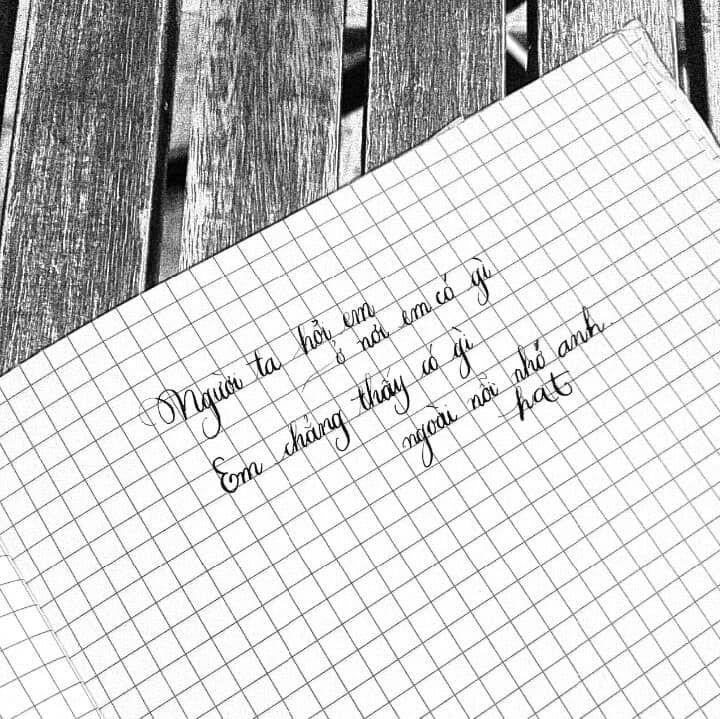 Người ta hỏi em
ở nơi em có gì
Em chẳng thấy có gì
ngoài nỗi nhớ anh
hat